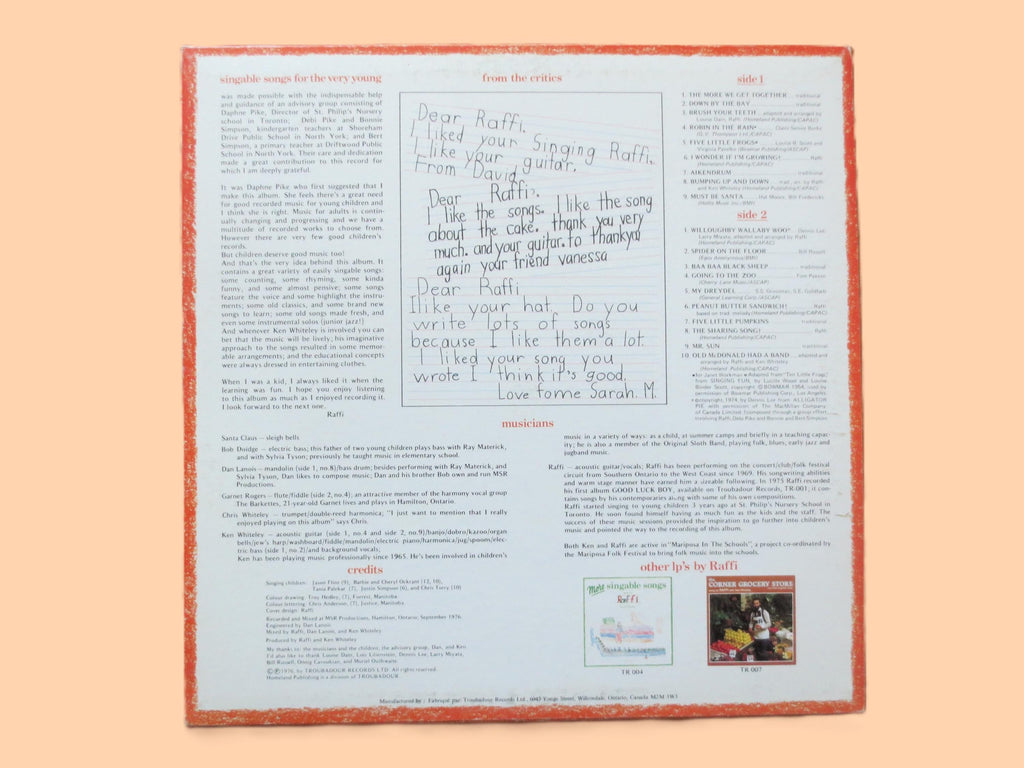 singable songs for the very young
was made possible with the indispensable help
and guidance of an advisory group consisting of
Daphne Pike, Director of St. Philip's Nursery
school in Toronto; Debi Pike and Bonnie
Simpson, kindergarten teachers at Shoreham
Drive Public School in North York; and Bert
Simpson, a primary teacher at Driftwood Public
School in North York. Their care and dedication
made a great contribution to this record for
which I am deeply grateful.
It was Daphne Pike who first suggested that I
make this album. She feels there's a great need
for good recorded music for young children and
I think she is right. Music for adults is contin-
ually changing and progressing and we have a
multitude of recorded works to choose from.
However there are very few good children's
records.
But children deserve good music too!
And that's the very idea behind this album. It
contains a great variety of easily singable songs:
some counting, some rhyming, some kinda
funny, and some almost pensive; some songs
feature the voice and some highlight the instru-
ments; some old classics, and some brand new
songs to learn; some old songs made fresh, and
even some instrumental solos (junior jazz!)
And whenever Ken Whiteley is involved you can
bet that the music will be lively; his imaginative
approach to the songs resulted in some memor-
able arrangements; and the educational concepts
were always dressed in entertaining clothes.
When I was a kid, I always liked it when the
learning was fun. I hope you enjoy listening
to this album as much as I enjoyed recording it.
I look forward to the next one.
Raffi
from the critics
Dear Raffi.
I liked your Singing Raffi.
I like your guitar.
From David
Dear Raffi.
I like the songs. I like the song
about the cake. thank you very
much. and your guitar. to thankyou
again your friend vanessa
Dear Raffi
I like your hat. Do you
write lots of songs
because I like them a lot.
I liked your song you
wrote I think it's good.
Love fome Sarah. M.
side 1
1. THE MORE WE GET TOGETHER ... traditional
2. DOWN BY THE BAY ... traditional
3. BRUSH YOUR TEETH ... adapted and arranged by
Louise Dain, Raffi (Homeland Publishing/CAPAC)
4. ROBIN IN THE RAIN
(G.V. Thompson Ltd./CAPAC)
5. FIVE LITTLE FROGS ... Louise B. Scott and
Virginia Pavelko (Bowmar Publishing/ASCAP)
6. I WONDER IF I'M GROWING! ... Raffi
(Homeland Publishing/CAPAC)
7. AIKENDRUM ... traditional
8. BUMPING UP AND DOWN ... trad., arr. by Raffi
and Ken Whiteley (Homeland Publishing/CAPAC)
9. MUST BE SANTA ... Hal Moore, Bill Fredericks
(Hollis Music Inc./BMI)
side 2
1. WILLOUGHBY WALLABY WOO ... Dennis Lee
Larry Miyata; adapted and arranged by Raffi
(Homeland Publishing/CAPAC)
2. SPIDER ON THE FLOOR ... Bill Russell
3. BAA BAA BLACK SHEEP ... traditional
4. GOING TO THE ZOO ... Tom Paxton
(Cherry Lane Music/ASCAP)
5. MY DREYDEL ... S.S. Grossman, S.E. Goldfarb
(General Learning Corp./ASCAP)
6. PEANUT BUTTER SANDWICH! ... Raffi
based on trad. melody (Homeland Publishing/CAPAC)
7. FIVE LITTLE PUMPKINS ... traditional
8. THE SHARING SONG! ... Raffi
(Homeland Publishing/CAPAC)
9. MR. SUN ... traditional
10. OLD McDONALD HAD A BAND ... adapted and
arranged by Raffi and Ken Whiteley
(Homeland Publishing/CAPAC)
musicians
Santa Claus – sleigh bells
Bob Doidge – electric bass; this father of two young children plays bass with Ray Materick,
and with Sylvia Tyson; previously he taught music in elementary school.
Dan Lanois – mandolin (side 1, no.8)/bass drum; besides performing with Ray Materick, and
Sylvia Tyson, Dan likes to compose music; Dan and his brother Bob own and run MSR
Productions.
Garnet Rogers – flute/fiddle (side 2, no.4); an attractive member of the harmony vocal group
The Barkettes, 21-year-old Garnet lives and plays in Hamilton, Ontario.
Chris Whiteley – trumpet/double-reed harmonica; "I just want to mention that I really
enjoyed playing on this album" says Chris.
Ken Whiteley – acoustic guitar (side 1, no.4 and side 2, no.9)/banjo/dobro/kazoo/organ
bells/jew's harp/washboard/fiddle/mandolin/electric piano/harmonica/jug/spoons/elec-
tric bass (side 1, no.2)/and background vocals;
Ken has been playing music professionally since 1965. He's been involved in children's
music in a variety of ways: as a child, at summer camps and briefly in a teaching capac-
ity; he is also a member of the Original Sloth Band, playing folk, blues, early jazz and
jugband music.
Raffi – acoustic guitar/vocals; Raffi has been performing on the concert/club/folk festival
circuit from Southern Ontario to the West Coast since 1969. His songwriting abilities
and warm stage manner have earned him a sizeable following. In 1975 Raffi recorded
his first album GOOD LUCK BOY, available on Troubadour Records, TR-001; it con-
tains songs by his contemporaries along with some of his own compositions.
Raffi started singing to young children 3 years ago at St. Philip's Nursery School in
Toronto. He soon found himself having as much fun as the kids and the staff. The
success of these music sessions provided the inspiration to go further into children's
music and pointed the way to the recording of this album.
Both Ken and Raffi are active in "Mariposa In The Schools", a project co-ordinated by
the Mariposa Folk Festival to bring folk music into the schools.
credits
Singing children: Jason Fline (9), Barbie and Cheryl Ockrant (12, 10),
Tania Palekar (7), Justin Simpson (6), and Chris Torry (10)
Colour drawing: Troy Hedley, (7), Forrest, Manitoba
Colour lettering: Chris Anderson, (7), Justice, Manitoba
Cover design: Raffi
Recorded and Mixed at MSR Productions, Hamilton, Ontario; September 1976.
Engineered by Dan Lanois
Mixed by Raffi, Dan Lanois, and Ken Whiteley
Produced by Raffi and Ken Whiteley
My thanks to: the musicians and the children, the advisory group, Dan, and Ken.
I'd also like to thank Louise Dain, Lois Lilienstein, Dennis Lee, Larry Miyata,
Bill Russell, Onnig Cavoukian, and Muriel Outhwaite.
©℗1976, by TROUBADOUR RECORDS LTD. All rights reserved.
Homeland Publishing is a division of TROUBADOUR.
other lp's by Raffi
More singable songs
Raffi
TR 004
CORNER GROCERY STORE
TR 007
Manufactured by / Fabriqué par: Troubadour Records Ltd., 6043 Yonge Street, Willowdale, Ontario, Canada M2M 1W3